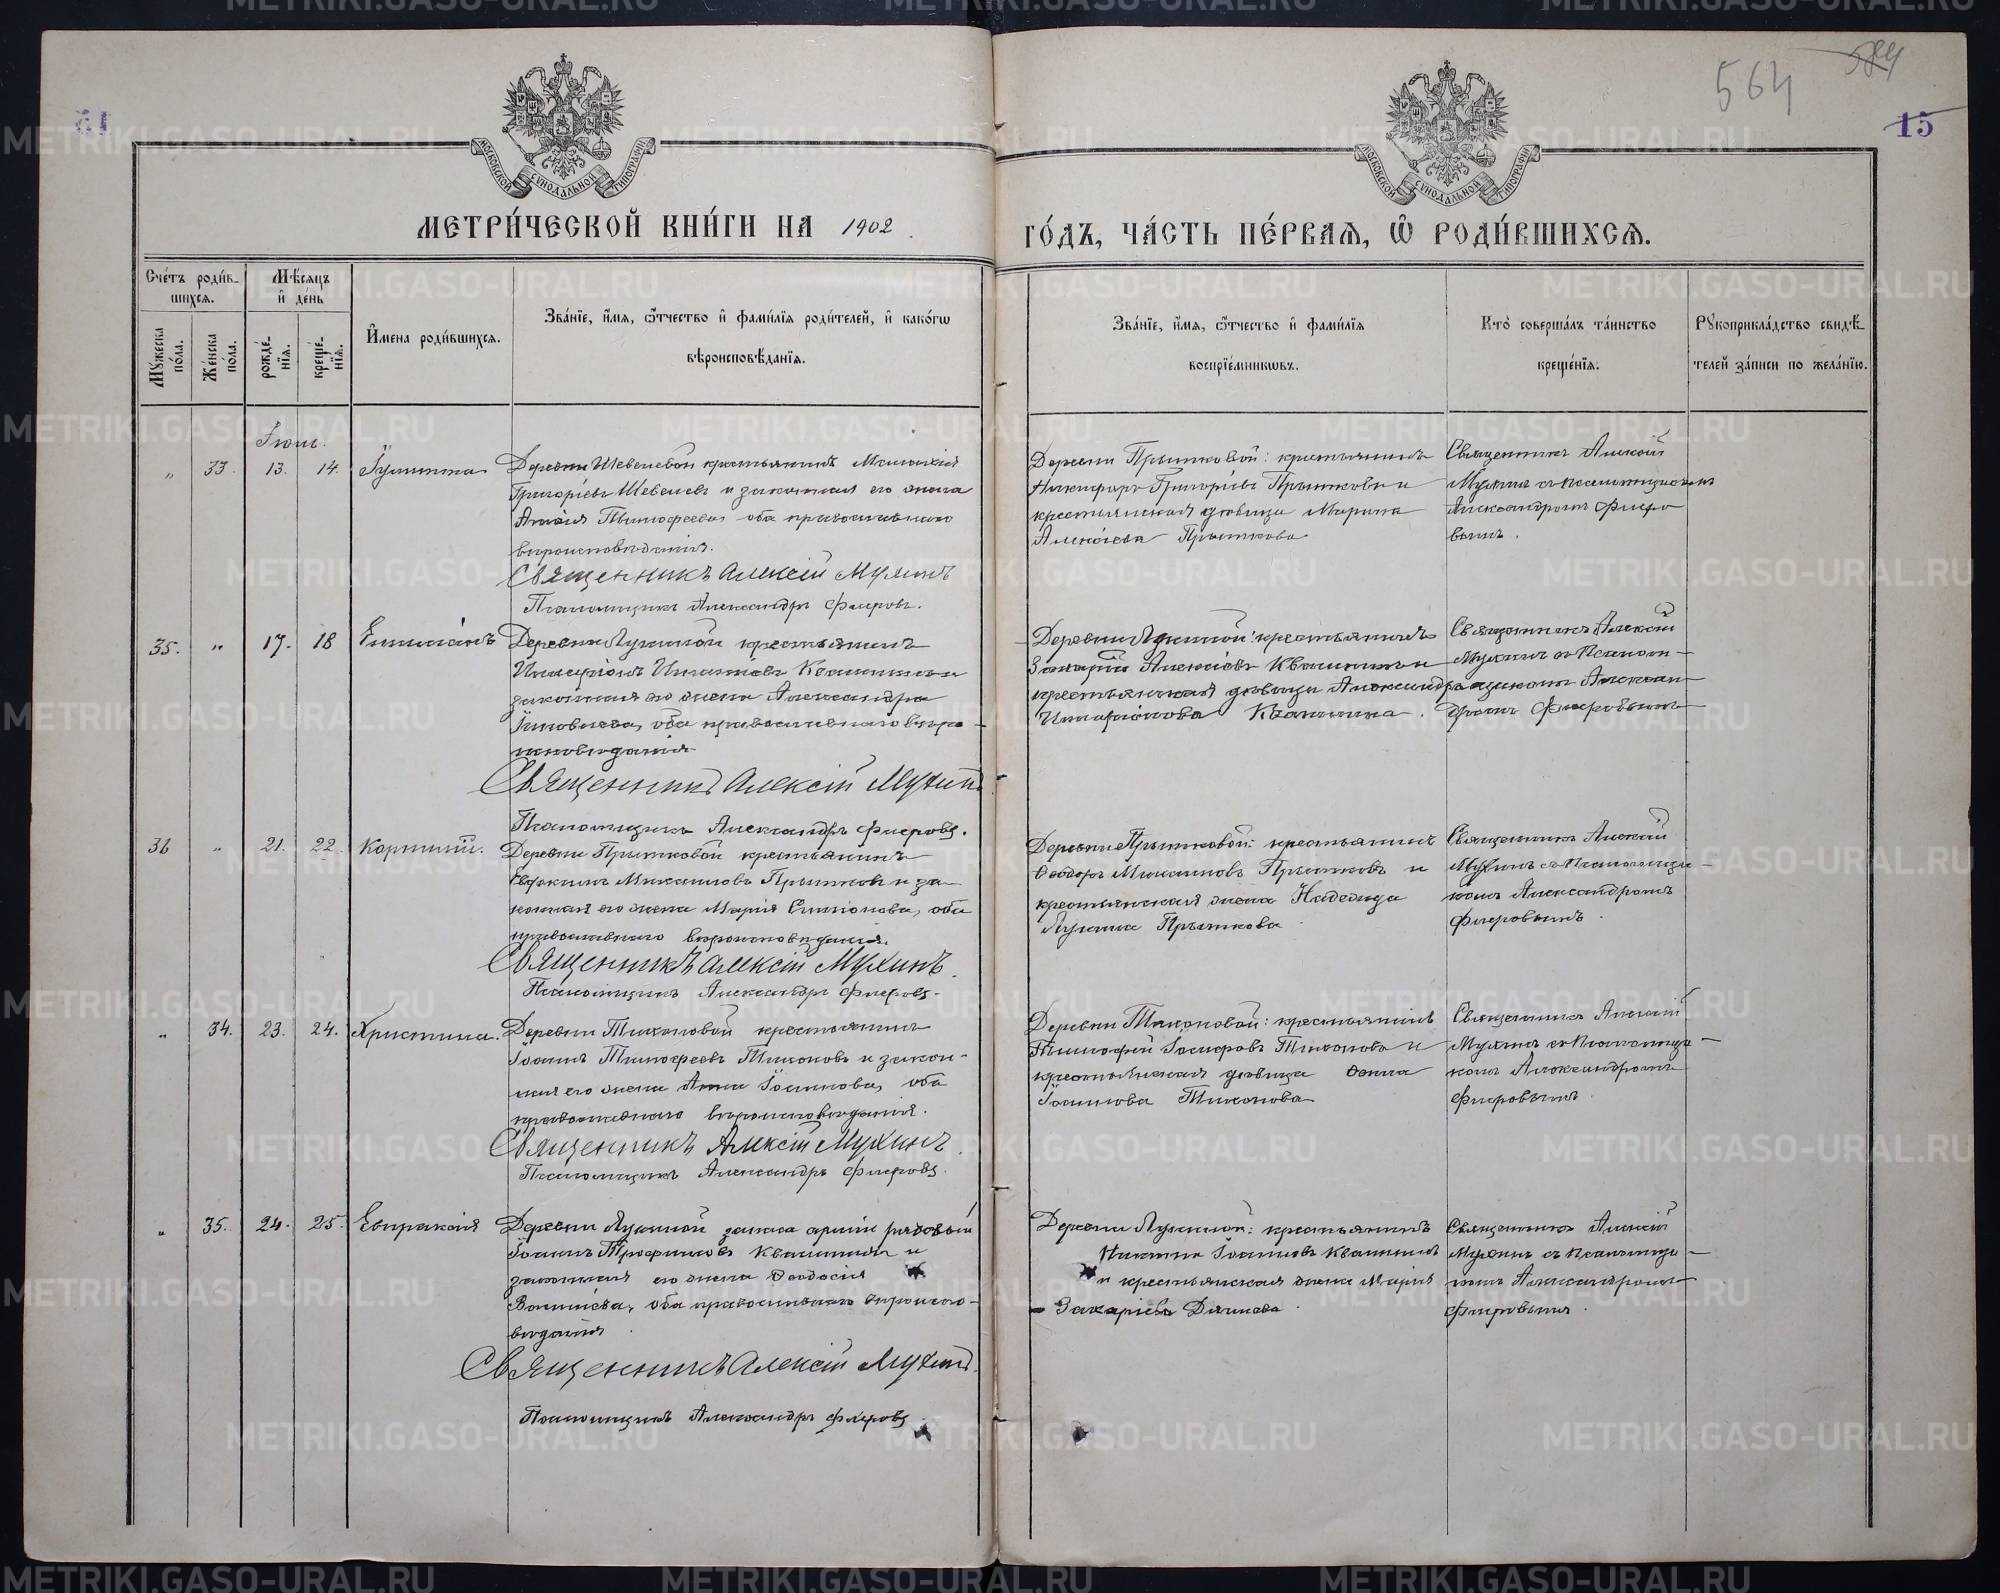 564
15
МОСКОВСКОЙ СУНОДАЛЬНОЙ ТИПОГРАФІИ
МОСКОВСКОЙ СУНОДАЛЬНОЙ ТИПОГРАФІИ
МЕТРИ́ЧЕСКОЙ КНИ́ГИ НА 1902
ГО́ДЪ, ЧА́СТЬ ПЕ́РВАЯ, Ѽ РОДИ́ВШИХСЯ.
Сче́тъ роди́в-
шихся.
Мꙋжеска по́ла.
Же́нска по́ла.
Мѣ́сяцъ
и҆ де́нь
рожде́нїя.
креще́нїя.
И҆мена роди́вшихся.
Зва́нїе, и҆́мя, ѻ҆́тчество и҆ фами́лїя роди́телей, и҆ како́гѡ
вѣроисповѣ́данїя.
Зва́нїе, и҆́мя, ѻ҆́тчество и҆ фами́лїя
воспрїе́мникѡвъ.
Кто̀ соверша́лъ та́инство
креще́нїя.
Рꙋкоприкла́дство свидѣ́-
телей за́писи по жела́нїю.
" 33. 13. 14. Іулитта
Деревни Шевелевой крестьянинъ
Григоріевъ Шевелевъ и законная его жена
Тимофеева, оба православнаго
вѣроисповѣданія.
Священникъ Алексій Мухинъ
Псаломщикъ Александръ Флеровъ.
Деревни Прытковой: крестьянинъ
Никифоръ Григоріевъ Прытковъ и
крестьянская дѣвица Марина
Алексіева Прыткова
Священникъ Алексій
Мухинъ съ псаломщикомъ
Александромъ Флеро
вымъ.
35. " 17. 18
Деревни Лукиной крестьянинъ
Игнатіевъ Квашнинъ и
законная его жена Александра
Іаковлева, оба православнаго вѣро-
исповѣданія
Священникъ Алексій Мухинъ
Псаломщикъ Александръ Флеровъ.
Деревни Лукиной: крестьянинъ
Захарій Алексіевъ Квашнинъ и
крестьянская дѣвица Александра
Иларіонова Квашнина.
Священникъ Алексій
Мухинъ съ Псалом-
щикомъ Алексан-
дромъ Флеровымъ
36 " 21. 22. Корнилій.
Деревни Прытковой крестьянинъ
Евфимъ Михаиловъ Прытковъ и за
конная его жена Марія Симеонова, оба
православнаго вѣроисповѣданія.
Священникъ Алексій Мухинъ.
Псаломщикъ Александръ Флеровъ.
Деревни Прытковой: крестьянинъ
Ѳеодоръ Михаиловъ Прытковъ и
крестьянская жена Надежда
Лукина Прыткова
Священникъ Алексій
Мухинъ съ Псаломщи-
комъ Александромъ
Флеровымъ.
" 34. 23. 24. Христина.
Деревни Тихоновой крестьянинъ
Іоаннъ Тимофеевъ Тихоновъ и закон-
ная его жена Анна Іоаннова, оба
православнаго вѣроисповѣданія.
Священникъ Алексій Мухинъ.
Псаломщикъ Александръ Флеровъ.
Деревни Тихоновой: крестьянинъ
Тимофей Іосифовъ Тихоновъ и
крестьянская дѣвица Ѳекла
Іоаннова Тихонова
Священникъ Алексій
Мухинъ съ Псаломщи-
комъ Александромъ
Флеровымъ.
" 35. 24. 25. Евпраксія
Деревни Лукиной запаса арміи рядовый
Іоакимъ Трофимовъ Квашнинъ и
законная его жена Ѳеодосія
оба православнаго вѣроиспо-
вѣданія.
Священникъ Алексій Мухинъ.
Псаломщикъ Александръ Флеровъ.
Деревни Лукиной: крестьянинъ
Никита Іоанновъ Квашнинъ
и крестьянская жена Марія
Захаріева
Священникъ Алексій
Мухинъ съ Псаломщи-
комъ Александромъ
Флеровымъ.
METRIKI.GASO-URAL.RU